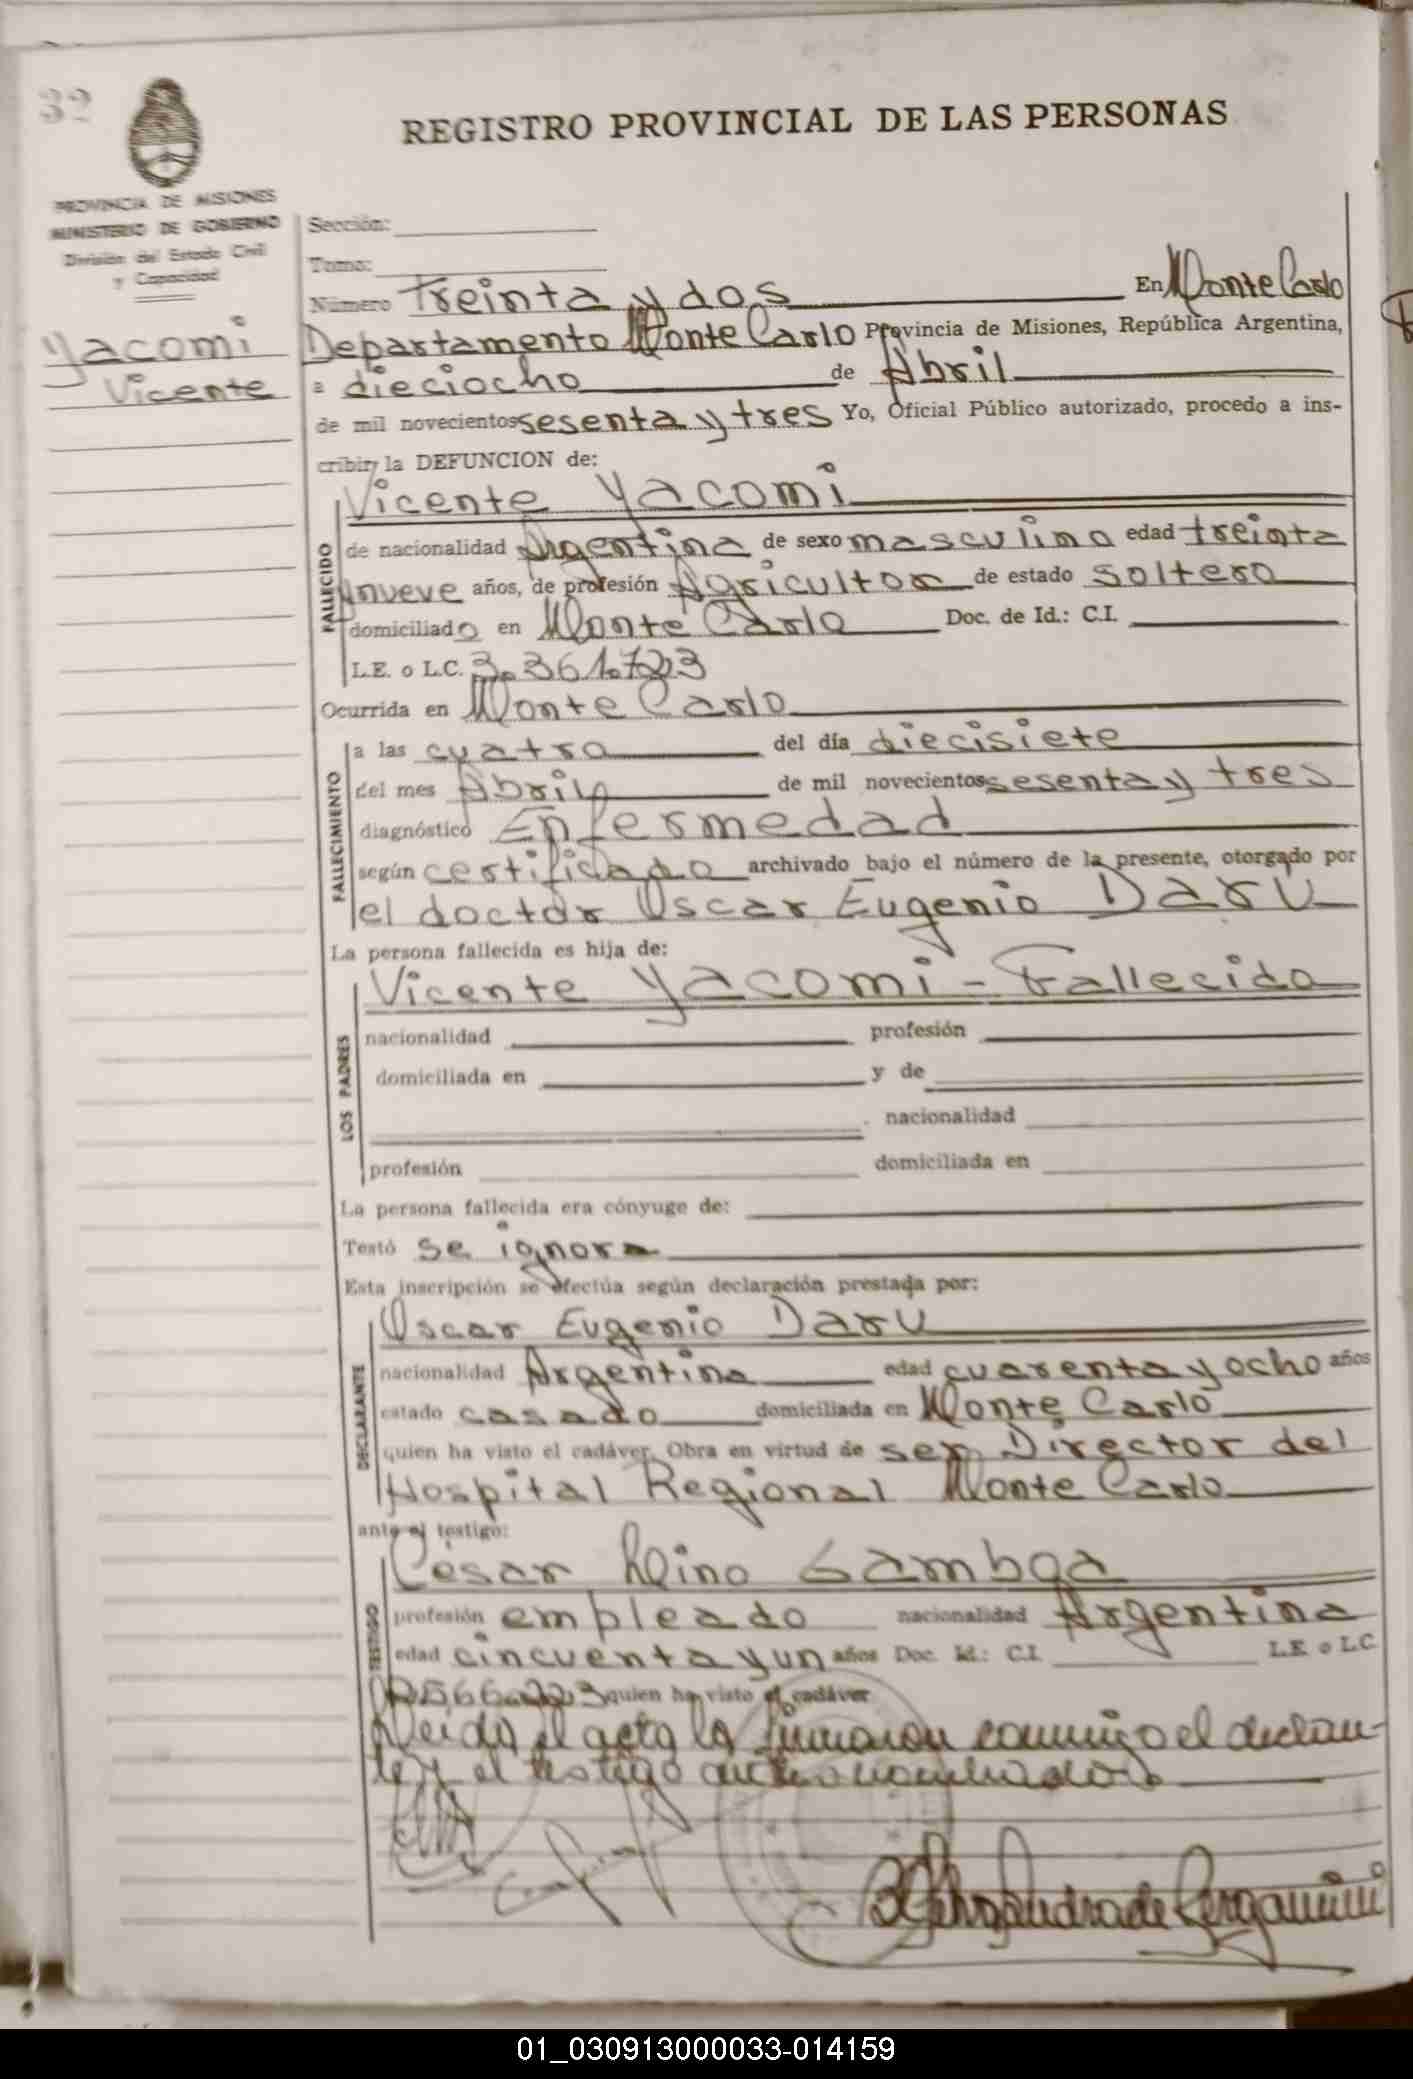 32
REGISTRO PROVINCIAL DE LAS PERSONAS
PROVINCIA DE MISIONES
MINISTERIO DE GOBIERNO
División del Estado Civil
y Capacidad
Yacomi
Vicente
Sección:
Tomo:
Número Treinta y dos En Monte Carlo
Departamento Monte Carlo Provincia de Misiones, República Argentina,
a dieciocho de Abril
de mil novecientos sesenta y tres Yo, Oficial Público autorizado, procedo a ins-
cribir la DEFUNCION de:
Vicente Yacomi
FALLECIDO
de nacionalidad Argentina de sexo masculino edad treinta
nueve años, de profesión Agricultor de estado soltero
domiciliado en Monte Carlo Doc. de Id.: C.I.
L.E. o L.C. 3.361.723
Ocurrida en Monte Carlo
FALLECIMIENTO
a las cuatro del día diecisiete
del mes Abril de mil novecientos sesenta y tres
diagnóstico Enfermedad
según certificado archivado bajo el número de la presente, otorgado por
el doctor Oscar Eugenio Daru
La persona fallecida es hija de:
Vicente Yacomi - Fallecido
LOS PADRES
nacionalidad profesión
domiciliada en y de
nacionalidad
profesión domiciliada en
La persona fallecida era cónyuge de:
Testó se ignora
Esta inscripción se efectúa según declaración prestada por:
Oscar Eugenio Daru
DECLARANTE
nacionalidad Argentina edad cuarenta y ocho años
estado casado domiciliada en Monte Carlo
quien ha visto el cadáver. Obra en virtud de ser Director del
Hospital Regional Monte Carlo
ante el testigo:
Cesar Gamboa
TESTIGO
profesión empleado nacionalidad Argentina
edad cincuenta y un años Doc. Id.: C.I. L.E. o L.C.
quien ha visto el cadáver
Leida el acta la firmaron conmigo el declaran-
te y el testigo
de Bergamini
01_030913000033-014159